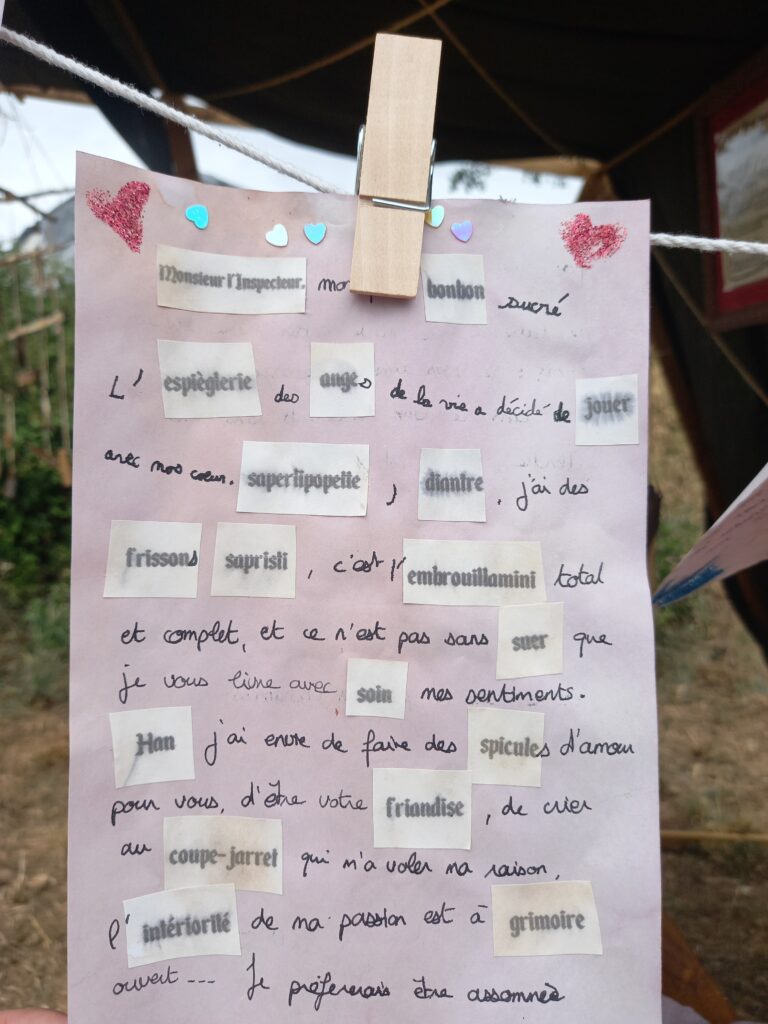 Monsieur l'Inspecteur. bonbon sucré
L' espièglerie des anges de la vie a décidé de jouer
avec nos coeur. saperlipopette, diantre, j'ai des
frissons sapristi, c'est l'embrouillamini total
et complet, et ce n'est pas sans suer que
je vous livre avec soin mes sentiments.
Han j'ai envie de faire des spicules d'amour
pour vous, d'être votre friandise, de crier
au coupe-jarret qui m'a voler ma raison,
l'intériorité de ma passion est à grimoire
ouvert --- Je préfererais être assommée